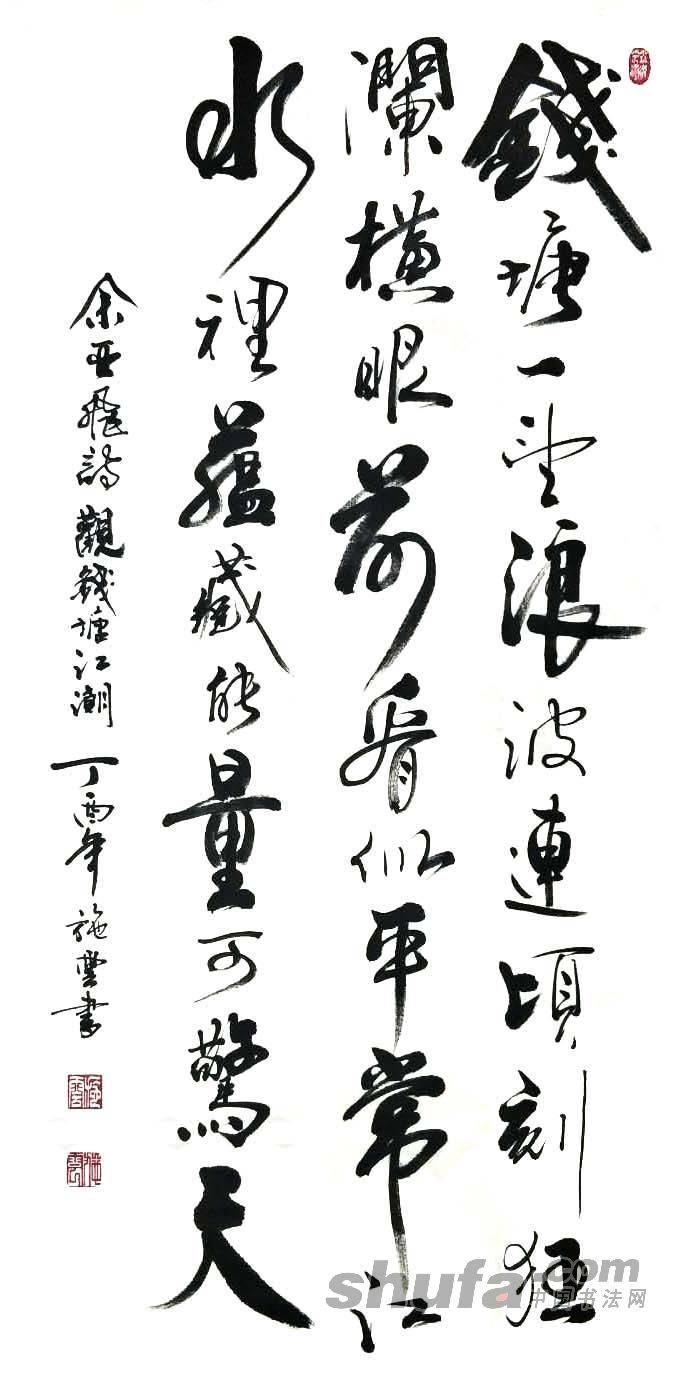 錢塘一望浪波連頃刻狂
瀾橫眼前看似平常江
水裡蘊藏能量可驚天
余亚飛詩觀錢塘江潮 丁酉年 施雲書
shufa.com
中国书法网